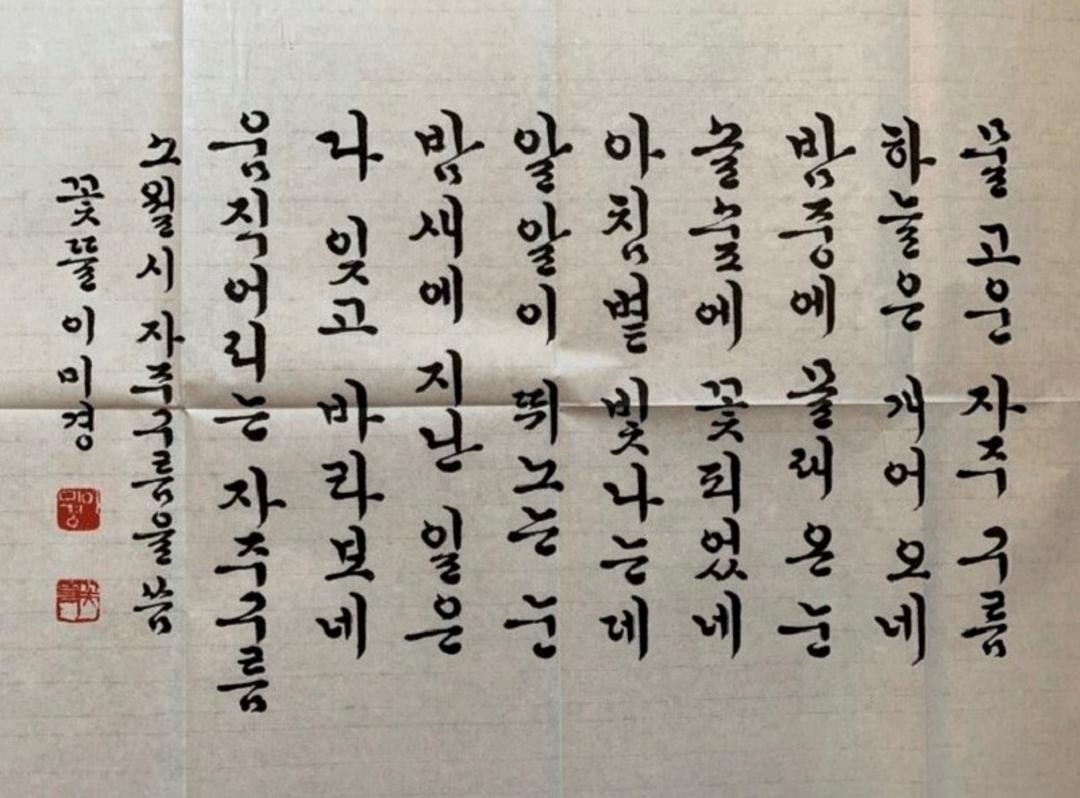 물 고운 자주 구름
하늘은 개어 오네
밤중에 몰래 온 눈
솔숲에 꽃피었네
아침볕 빛나는데
알알이 뛰노는 눈
밤새에 지난 일은
다 잊고 바라보네
움직어리는 자주구름
소월시 자주구름을 씀
꽃뜰 이미경
이미경
꽃뜰